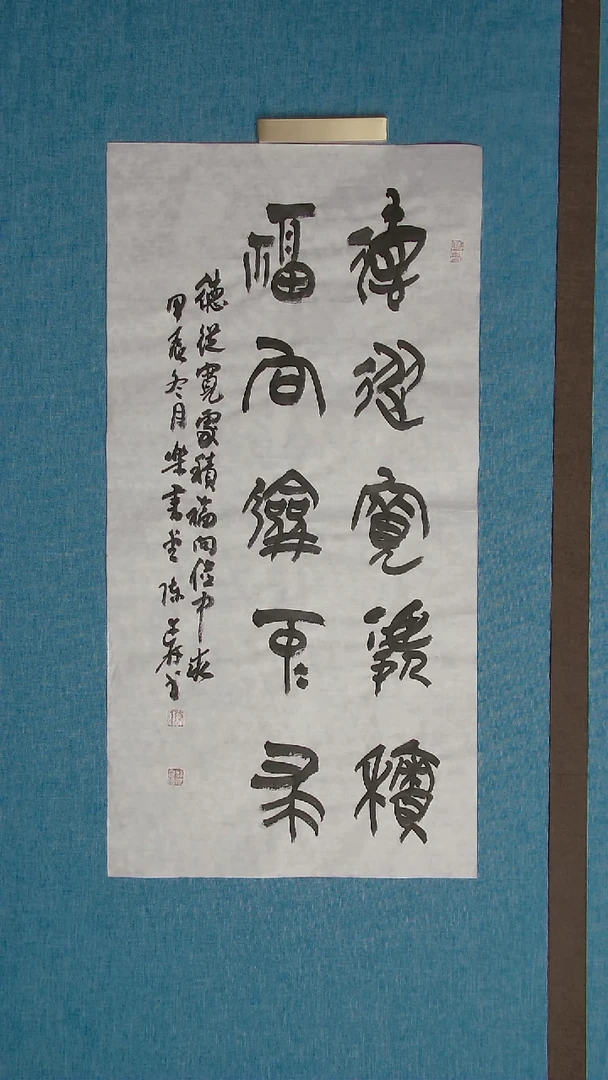 德從寬處積
福向儉中求
德從寬處積福向儉中求
甲辰冬月樂書堂陳